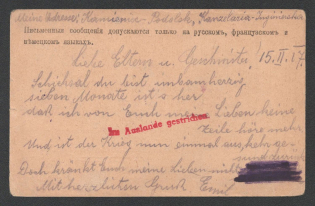 Meine Adresse: Kamieniec-Podolsk,
Письменныя сообщенія допускаются только на русскомъ, французскомъ и
нѣмецкомъ языкахъ.
Liebe Eltern u. Geschwister! 15. II. 17
Schicksal du bist unbarmherzig
sieben Monate ist's her
daß ich von Euch meine Lieben keine
Im Auslande gestrichen.
Zeile höre mehr
Und ist der Krieg nun einmal
Doch kränkt Euch meine Lieben
Mit herzlichen Gruß Emil